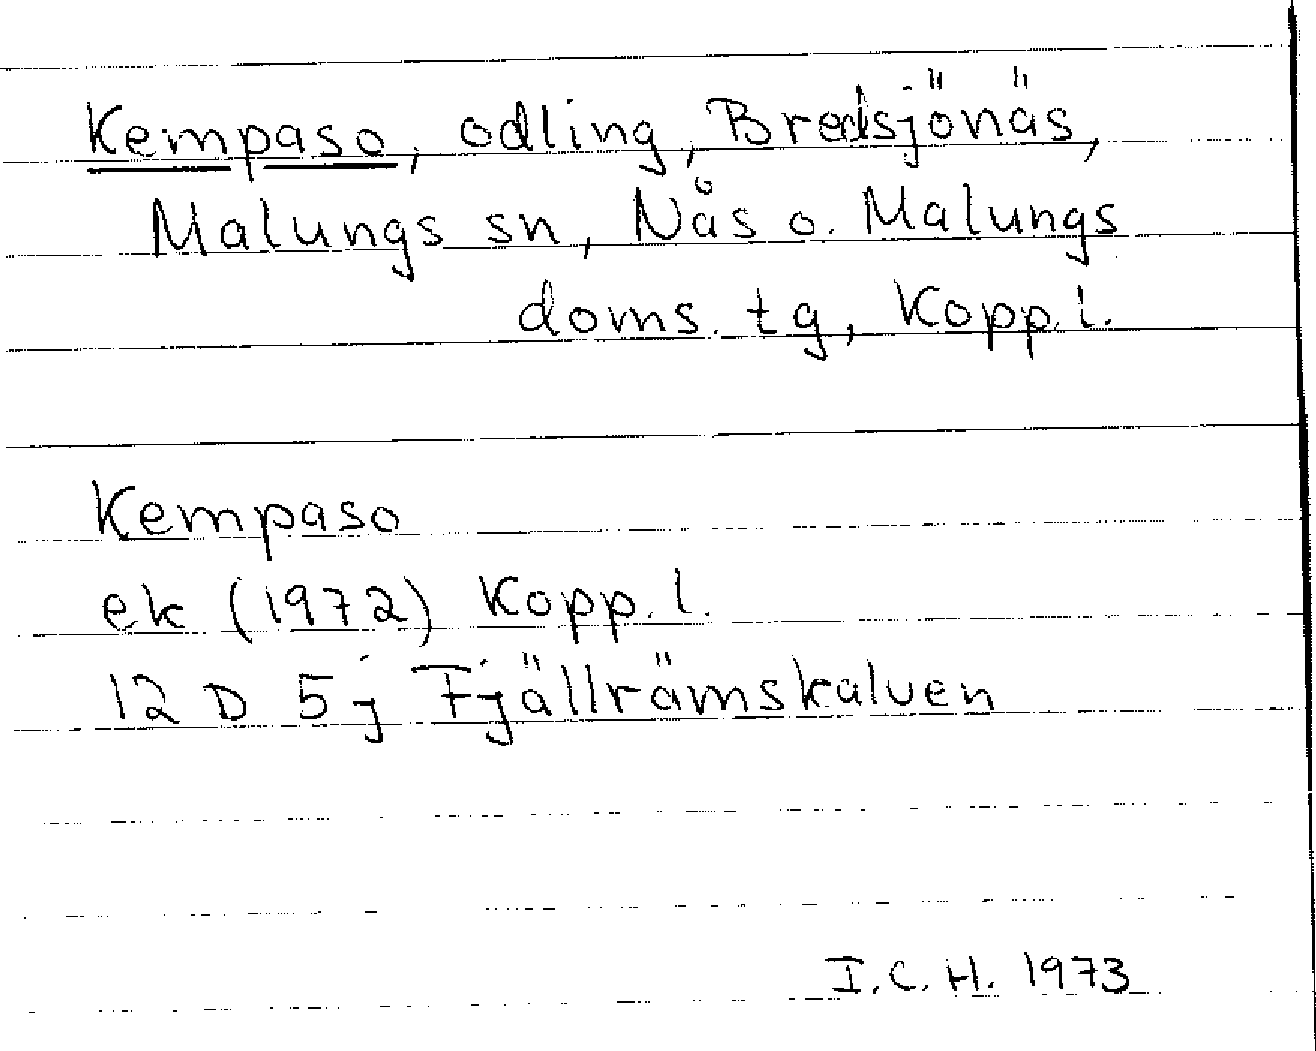 Kempaso, odling, Bredsjönäs,
Malungs sn, Nås o. Malungs
doms. tg, Kopp. l.
Kempaso
ek (1972) Kopp. l.
12 D 5 j Fjällrämskalven
I. C. H. 1973